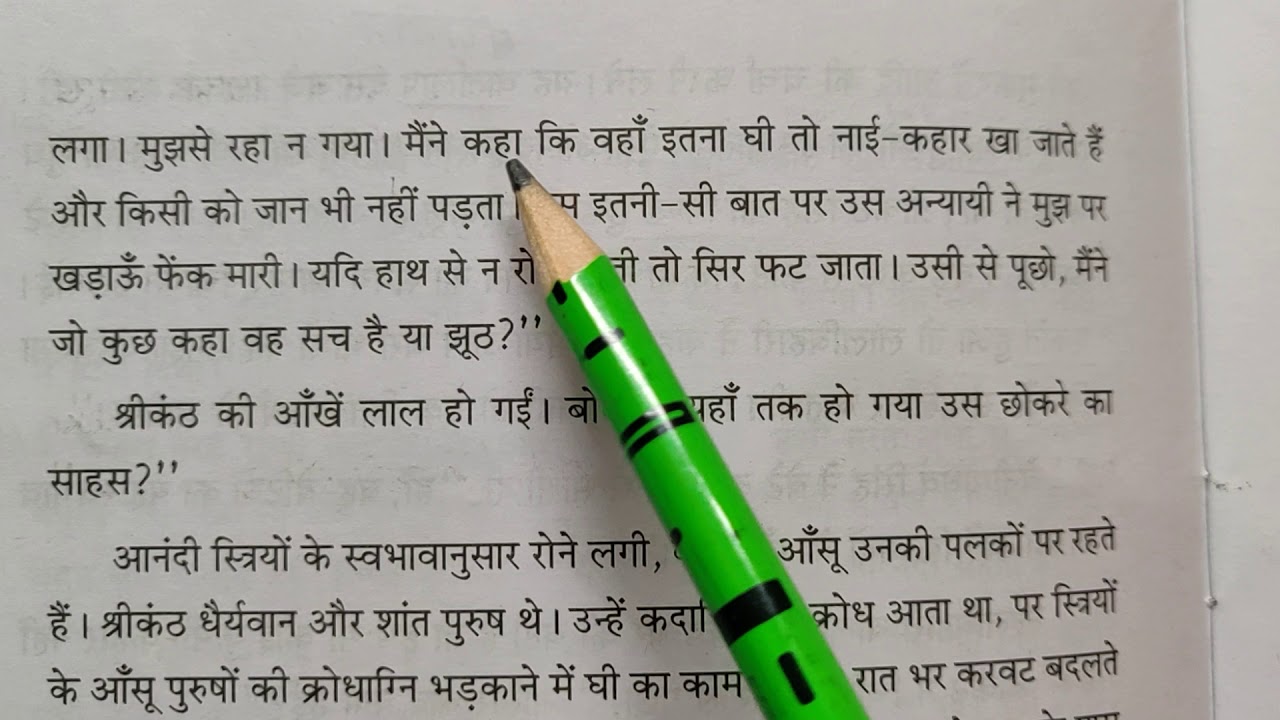 लगा। मुझसे रहा न गया। मैंने कहा कि वहाँ इतना घी तो नाई-कहार खा जाते हैं
और किसी को जान भी नहीं पड़ता। इतनी-सी बात पर उस अन्यायी ने मुझ पर
खड़ाऊँ फेंक मारी। यदि हाथ से न तो सिर फट जाता। उसी से पूछो, मैंने
जो कुछ कहा वह सच है या झूठ?’’
श्रीकंठ की आँखें लाल हो गईं। यहाँ तक हो गया उस छोकरे का
साहस?’’
आनंदी स्त्रियों के स्वभावानुसार रोने लगी, आँसू उनकी पलकों पर रहते
हैं। श्रीकंठ धैर्यवान और शांत पुरुष थे। उन्हें क्रोध आता था, पर स्त्रियों
के आँसू पुरुषों की क्रोधाग्नि भड़काने में घी का काम रात भर करवट बदलते